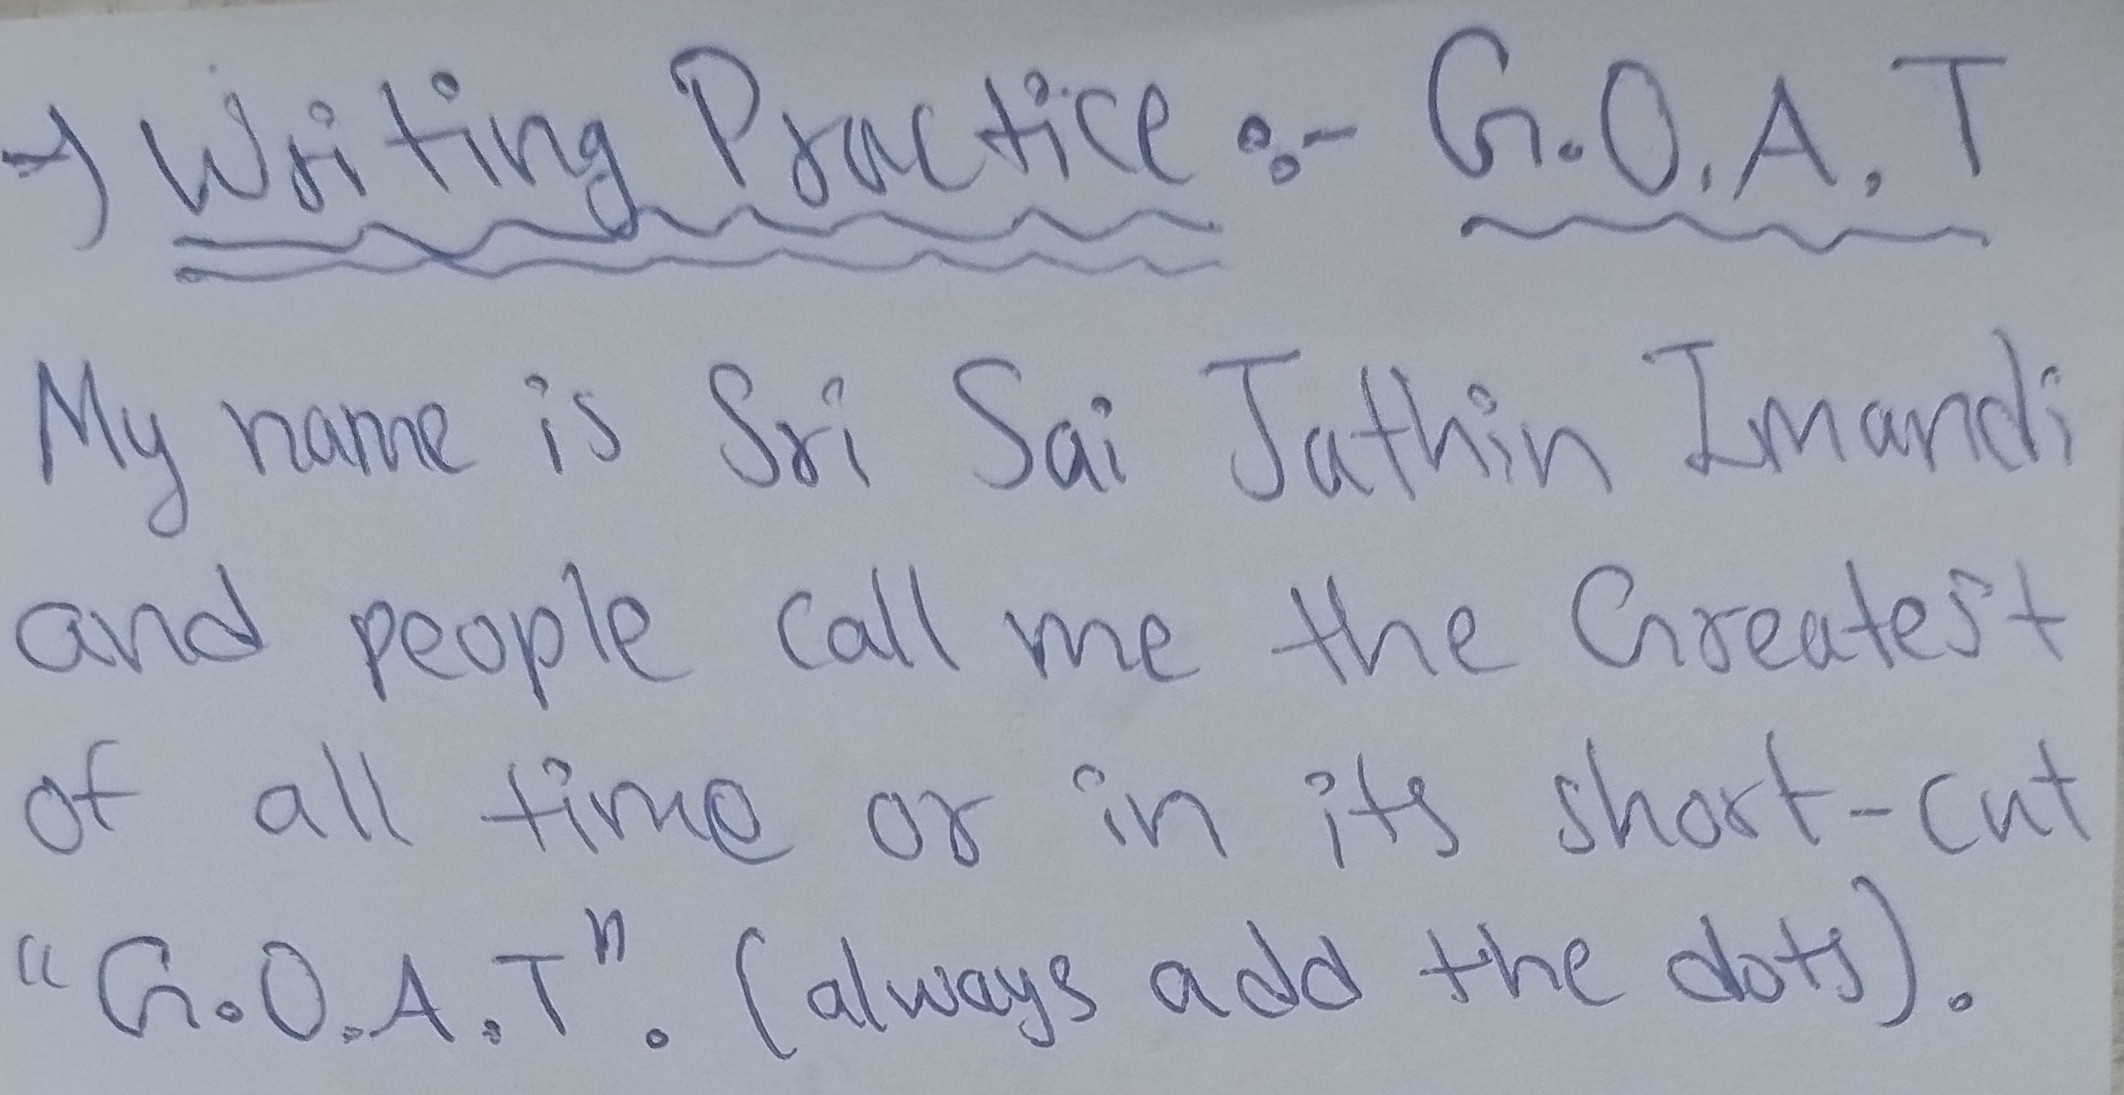 →) Writing Practice :- G.O.A.T
My name is Sri Sai Jathin Imandi
and people call me the Greatest
of all time or in its short-cut
"G.O.A.T". (always add the dots).